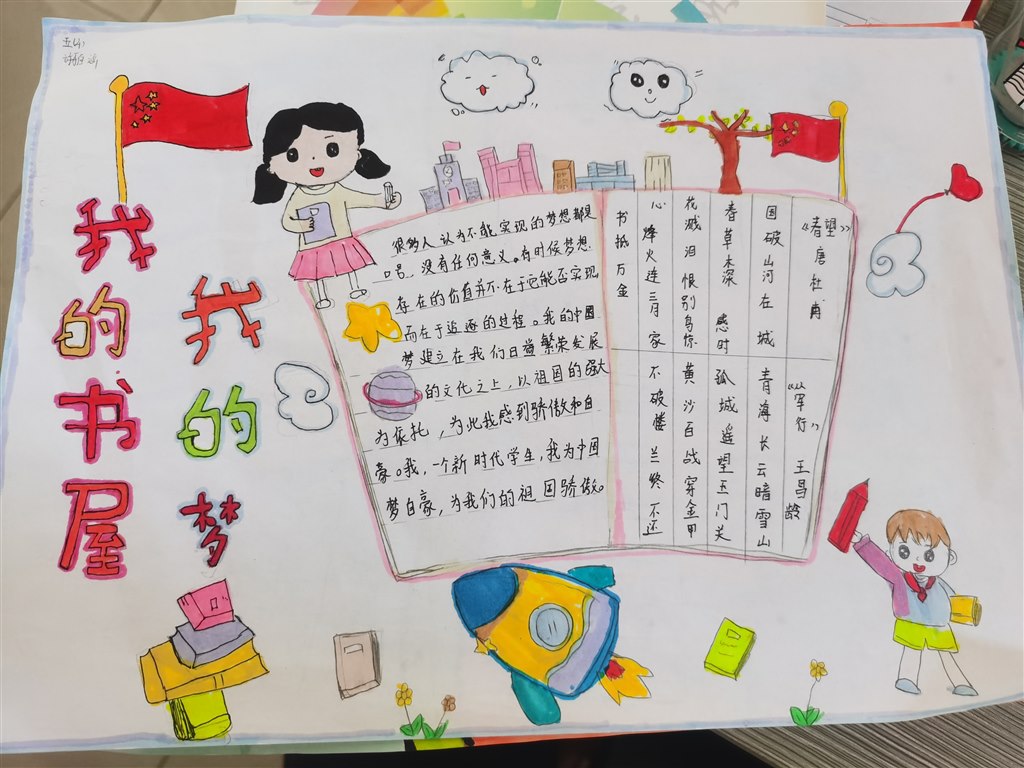 我的书屋
我的梦
很多人认为不能实现的梦想都是
口号,没有任何意义。有时候梦想
存在的价值并不在于它能否实现
而在于追逐的过程。我的中国
梦建立在我们日益繁荣发展
的文化之上,以祖国的强大
为依托,为此我感到骄傲和自
豪。我,一个新时代学生,我为中国
梦自豪,为我们的祖国骄傲。
《春望》 唐 杜甫
国破山河在 城
春草木深 感时
花溅泪 恨别鸟惊
心 烽火连三月 家
书抵万金
《从军行》 王昌龄
青海长云暗雪山
孤城遥望玉门关
黄沙百战穿金甲
不破楼兰终不还